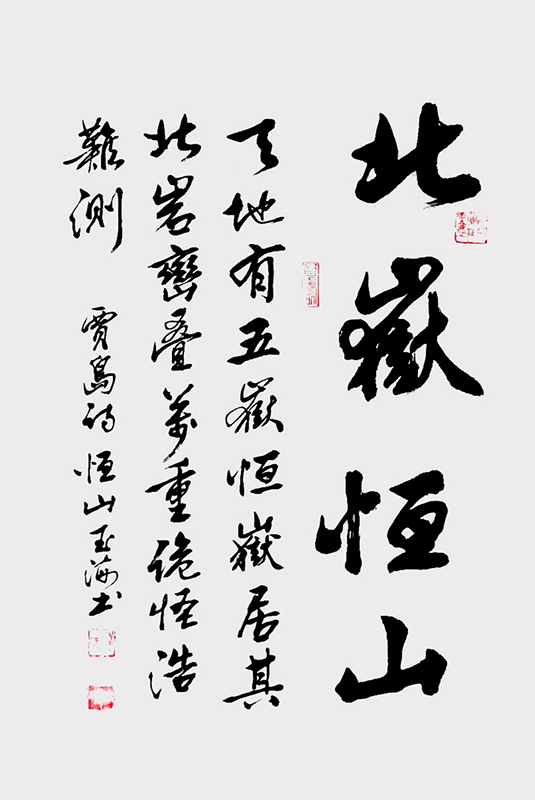 北嶽恒山
天地有五嶽恒嶽居其
北岩巒叠萬重詭怪浩
難測
賈島詩恒山玉海书